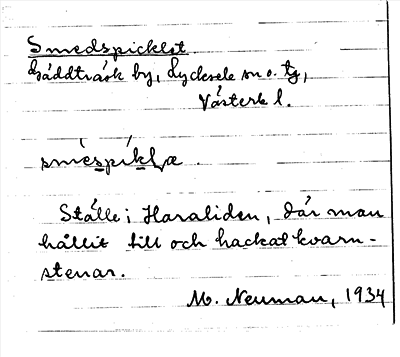 Smedspicklet
Gäddträsk by, Lycksele sn o. tg,
Västerb l.
smèspíklæ.
Ställe i Haraliden, där man
hållit till och hackat kvarn-
stenar.
M. Neuman, 1934